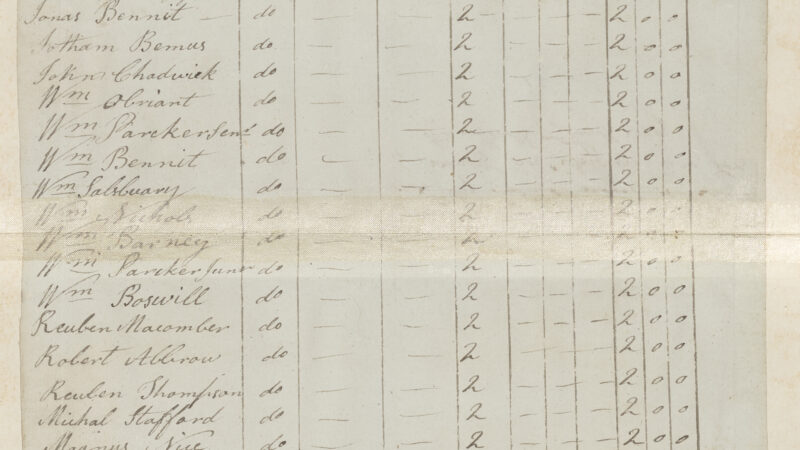 Jonas Bennit — do — — 2 — — — 2 0 0
Jotham Bemus do — — 2 — — — 2 0 0
John Chadwick do — — 2 — — — 2 0 0
Wm Obriant do — — 2 — — — 2 0 0
Wm Parcker Senr do — — 2 — — — 2 0 0
Wm Bennit do — — 2 — — — 2 0 0
Wm Salsbuary do — — 2 — — — 2 0 0
Wm Nichols do — — 2 — — — 2 0 0
Wm Barney do — — 2 — — — 2 0 0
Wm Parcker Junr do — — 2 — — — 2 0 0
Wm Boswill do — — 2 — — — 2 0 0
Reuben Macomber do — — 2 — — — 2 0 0
Robert Abbrow do — — 2 — — — 2 0 0
Reuben Thompson do — — 2 — — — 2 0 0
Michal Stafford do — — 2 — — — 2 0 0
Magnus do — — 2 — — — 2 0 0